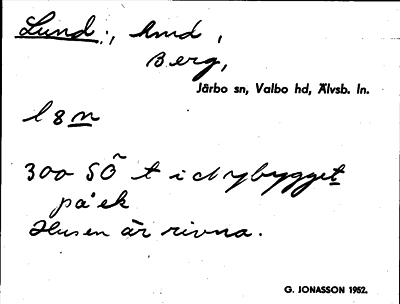 Lund:, Amd,
Berg,
Järbo sn, Valbo hd, Älvsb. ln.
l 8 n
300 SÖ t i d nybygget
på ek
Husen är rivna.
G. JONASSON 1952.